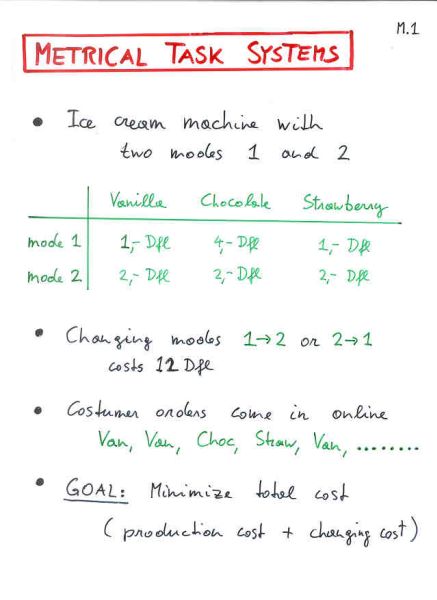 M.1
METRICAL TASK SYSTEMS
• Ice cream machine with
two modes 1 and 2
Vanilla Chocolate Strawberry
mode 1 1,- Dfl 4,- Dfl 1,- Dfl
mode 2 2,- Dfl 2,- Dfl 2,- Dfl
• Changing modes 1→2 or 2→1
costs 12 Dfl
• Costumer orders come in online
Van, Van, Choc, Straw, Van, ........
• GOAL: Minimize total cost
(production cost + changing cost)